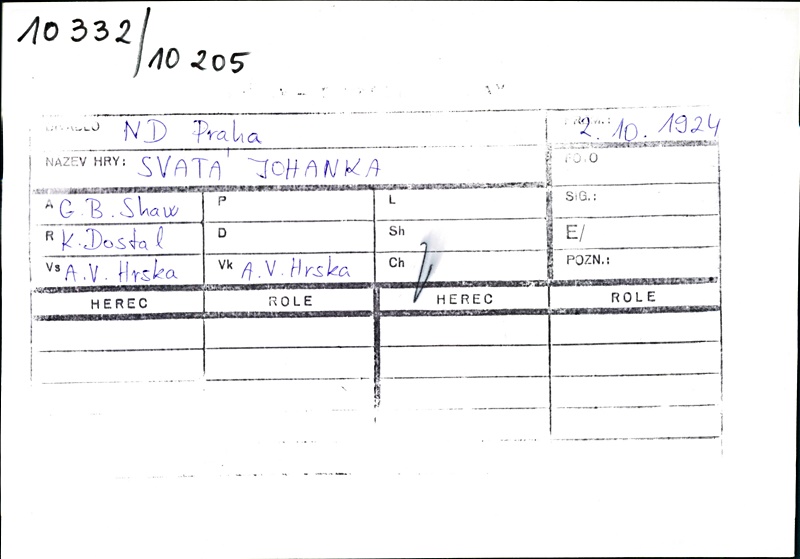 10 332/
10 205
DIVADLO ND Praha 2. 10. 1924
NÁZEV HRY: SVATÁ JOHANKA FOTO
A G. B. Shaw P L SIG.:
R K. Dostal D Sh E/
Vs A. V. Hrska Vk A. V. Hrska Ch POZN.:
HEREC ROLE HEREC ROLE